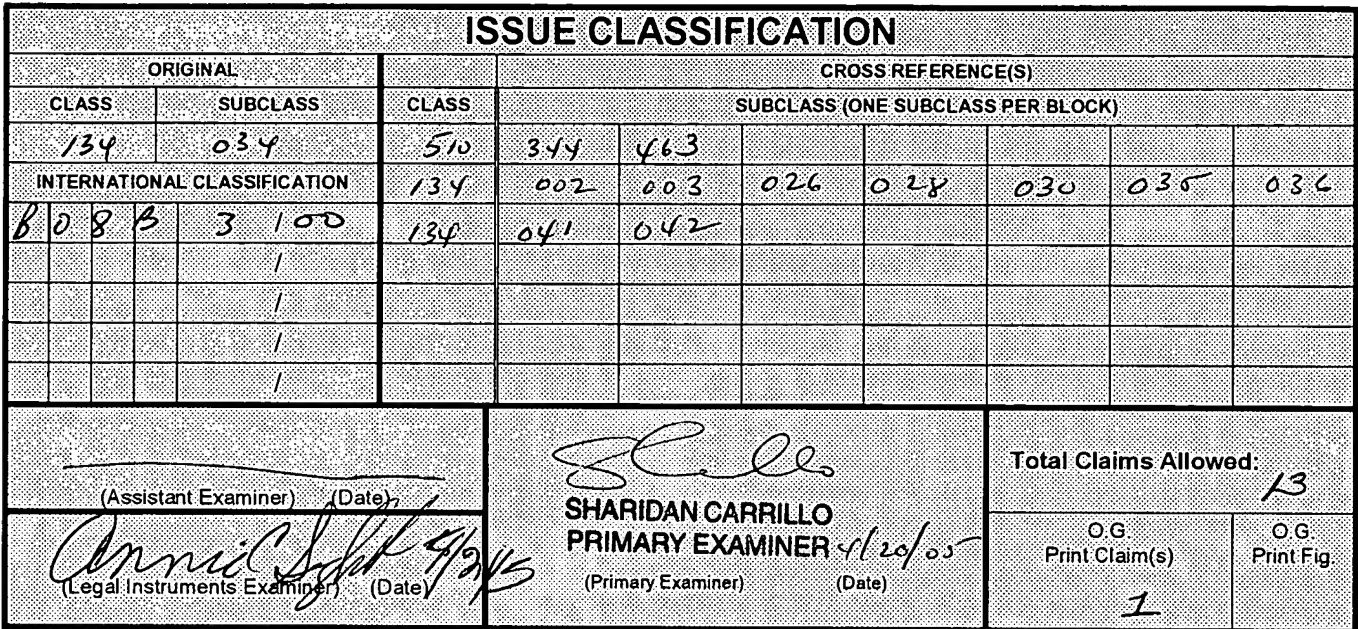 ISSUE CLASSIFICATION
ORIGINAL CROSS REFERENCE(S)
CLASS SUBCLASS CLASS SUBCLASS (ONE SUBCLASS PER BLOCK)
134 034 510 344 463
INTERNATIONAL CLASSIFICATION 134 002 003 026 028 030 035 036
B 0 8 B 3 / 00 134 041 042
/
/
/
/
Total Claims Allowed:
13
(Assistant Examiner) (Date)
SHARIDAN CARRILLO
PRIMARY EXAMINER 4/20/05
(Primary Examiner) (Date)
Annie
(Legal Instruments Examiner) (Date)
O.G. Print Claim(s)
1
O.G. Print Fig.